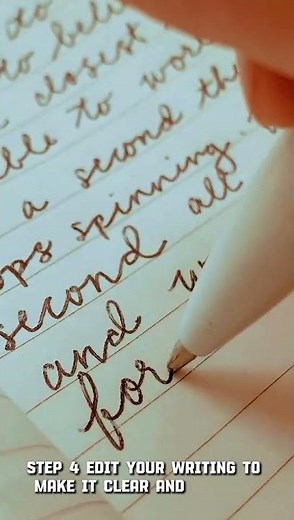 to
to beli
closest
ble to wor
a second th
ops spinning.
second all
and w
for
STEP 4 EDIT YOUR WRITING TO
MAKE IT CLEAR AND